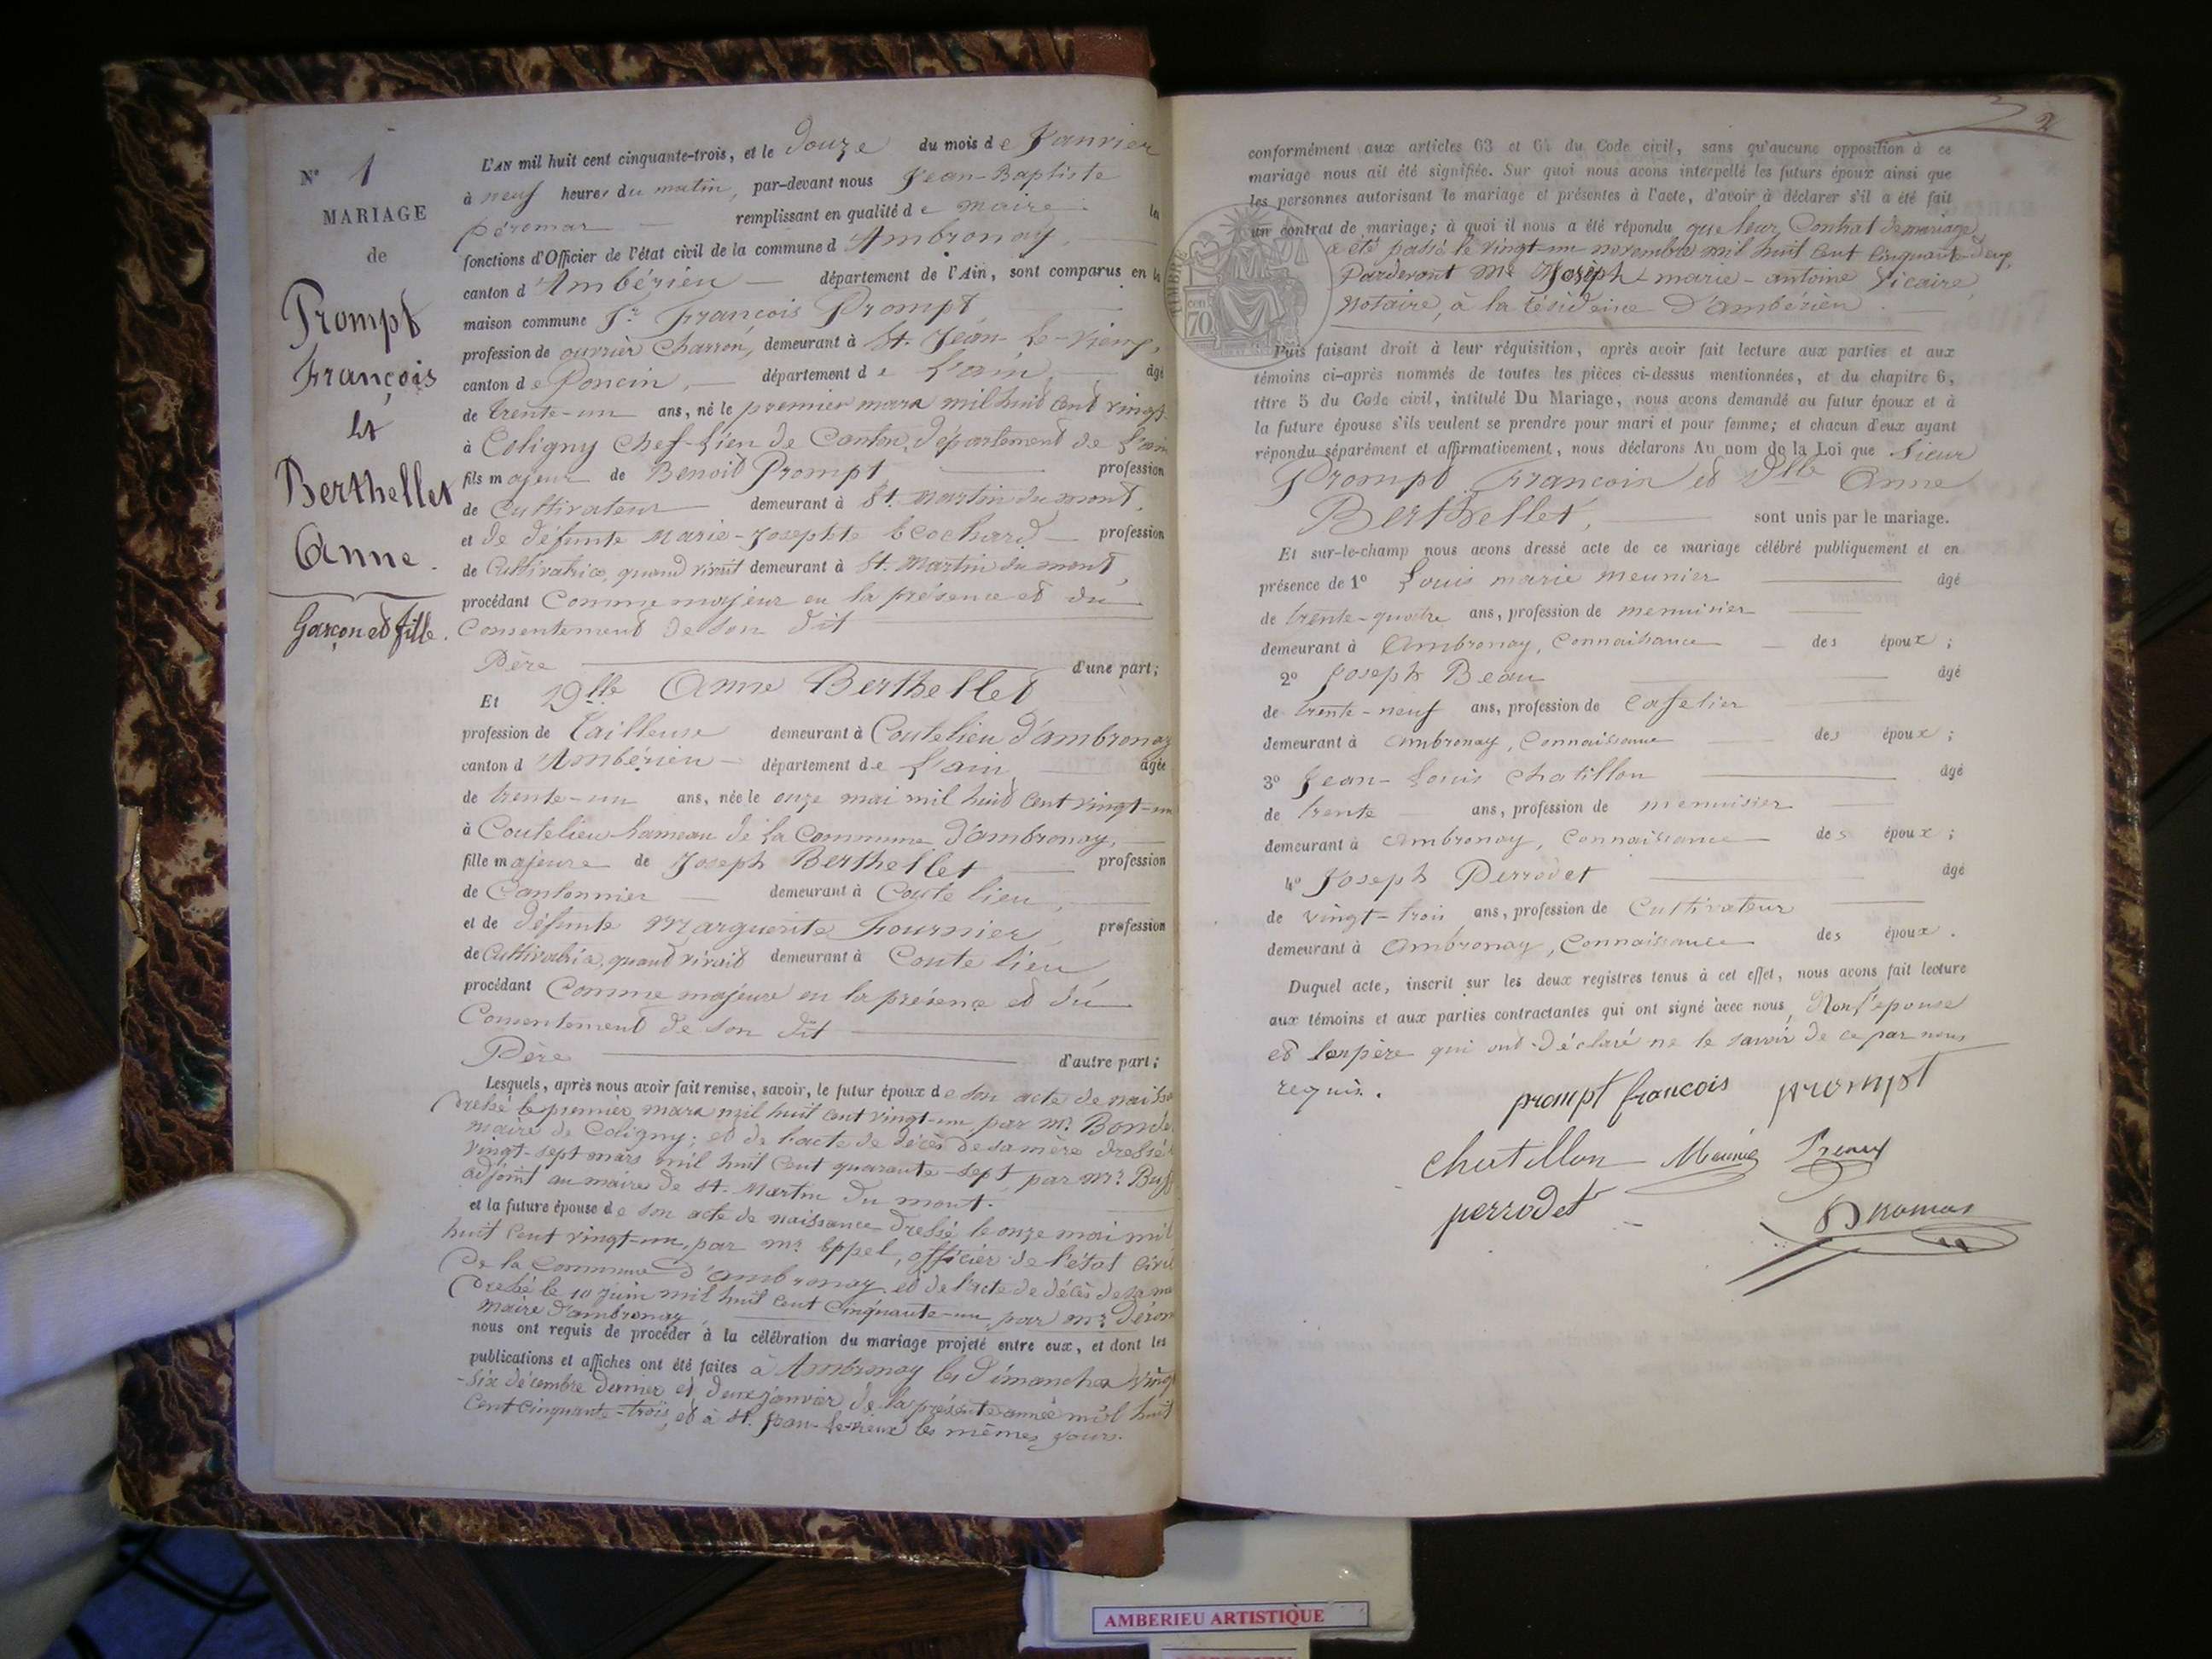 N° 1
MARIAGE
de
Prompt
François
et
Berthellet
Anne.
Garçon et fille.
L'AN mil huit cent cinquante-trois, et le douze du mois de Janvier
à neuf heures du matin, par-devant nous Jean-Baptiste
remplissant en qualité de maire les
fonctions d'Officier de l'état civil de la commune d'Ambronay,
canton d'Ambérieu département de l'Ain, sont comparus en la
maison commune Sr François Prompt
profession de ouvrier charron, demeurant à St. Jean-le-Vieux,
canton de Poncin, département de l'ain, âgé
de trente-un ans, né le premier mars mil huit cent vingt-
à Coligny chef-lieu de Canton, département de l'ain
fils majeur de Benoit Prompt profession
de Cultivateur demeurant à St. Martin du mont,
et de défunte Marie-Josephte profession
de Cultivatrice, quand vivait demeurant à St. Martin du mont,
procédant Comme majeur en la présence et du
Consentement de son dit
Père d'une part;
Et Dlle Anne Berthellet
profession de Tailleuse demeurant à Coutelieu d'ambronay
canton d'Ambérieu département de l'ain âgée
de trente-un ans, née le onze mai mil huit cent vingt-un
à Coutelieu hameau de la Commune d'ambronay,
fille majeure de Joseph Berthellet profession
de Cantonnier demeurant à Coutelieu,
et de défunte Marguerite Fournier, profession
de Cultivatrice, quand vivait demeurant à Coutelieu
procédant Comme majeure en la présence et du
Consentement de son dit
Père d'autre part;
Lesquels, après nous avoir fait remise, savoir, le futur époux de son acte de naissa
dressé le premier mars mil huit cent vingt-un, par mr.
maire de Coligny; et de l'acte de décès de sa mère dressé
vingt-sept mars mil huit cent quarante-sept, par mr.
adjoint au maire de St. Martin du mont.
et la future épouse de son acte de naissance dressé le onze mai mil
huit cent vingt-un, par mr. Eppel, officier de l'état civil
de la Commune d'ambronay et de l'acte de décès de sa
dressé le 10 juin mil huit cent cinquante-un, par mr.
maire d'ambronay,
nous ont requis de procéder à la célébration du mariage projeté entre eux, et dont les
publications et affiches ont été faites à Ambronay les Dimanches vingt
-six décembre dernier et deux janvier de la présente année mil huit
cent cinquante-trois, et à St. Jean-le-vieux les mêmes jours.
2
conformément aux articles 63 et 64 du Code civil, sans qu'aucune opposition à ce
mariage nous ait été signifiée. Sur quoi nous avons interpellé les futurs époux ainsi que
les personnes autorisant le mariage et présentes à l'acte, d'avoir à déclarer s'il a été fait
un contrat de mariage; à quoi il nous a été répondu que leur Contrat de mariage
a été passé le vingt-un novembre mil huit cent cinquante deux,
Pardevant Me Joseph-marie-antoine Vicaire,
Notaire, à la résidence D'ambérieu.
TIMBRE
70
Puis faisant droit à leur réquisition, après avoir fait lecture aux parties et aux
témoins ci-après nommés de toutes les pièces ci-dessus mentionnées, et du chapitre 6,
titre 5 du Code civil, intitulé Du Mariage, nous avons demandé au futur époux et à
la future épouse s'ils veulent se prendre pour mari et pour femme; et chacun d'eux ayant
répondu séparément et affirmativement, nous déclarons Au nom de la Loi que Sieur
Prompt François et Dlle Anne
Berthellet, sont unis par le mariage.
Et sur-le-champ nous avons dressé acte de ce mariage célébré publiquement et en
présence de 1° Louis marie meunier âgé
de trente-quatre ans, profession de menuisier
demeurant à Ambronay, Connaissance des époux;
2° Joseph Beau âgé
de trente-neuf ans, profession de Cafetier
demeurant à ambronay, Connaissance des époux;
3° Jean-Louis Chatillon âgé
de trente ans, profession de menuisier
demeurant à ambronay, Connaissance des époux;
4° Joseph Perrodet âgé
de vingt-trois ans, profession de Cultivateur
demeurant à ambronay, Connaissance des époux.
Duquel acte, inscrit sur les deux registres tenus à cet effet, nous avons fait lecture
aux témoins et aux parties contractantes qui ont signé avec nous, Non l'épouse
et son père qui ont déclaré ne le savoir de ce par nous
requis.
prompt francois prompt
chatillon Meunié
perrodet
AMBERIEU ARTISTIQUE